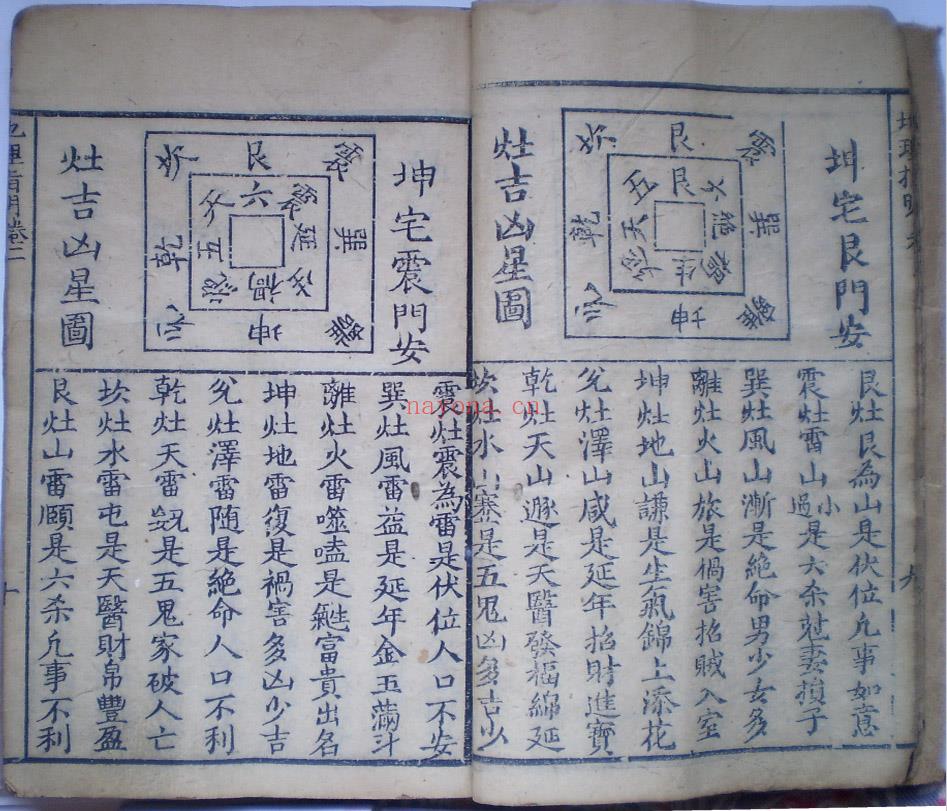 地理指明
坤宅艮門安
灶吉凶星圖
坎 艮 震
五 艮 六
乾 天 絕 巽
延 生 禍
兌 坤 離
艮灶艮為山是伏位凡事如意
震灶雷山小過是六杀尅妻損子
巽灶風山漸是絕命男少女多
離灶火山旅是禍害招賊入室
坤灶地山謙是生氣錦上添花
兌灶澤山咸是延年招財進寶
乾灶天山遯是天醫發福綿延
坎灶水山蹇是五鬼凶多吉少
九
坤宅震門安
灶吉凶星圖
坎 艮 震
天 六 震
乾 五 延 巽
絕 禍 生
兌 坤 離
震灶震為雷是伏位人口不安
巽灶風雷益是延年金玉滿斗
離灶火雷噬嗑是生氣富貴出名
坤灶地雷復是禍害多凶少吉
兌灶澤雷隨是絕命人口不利
乾灶天雷无妄是五鬼家破人亡
坎灶水雷屯是天醫財帛豐盈
艮灶山雷頤是六杀凡事不利
地理指明卷二
十
naʏona.cn